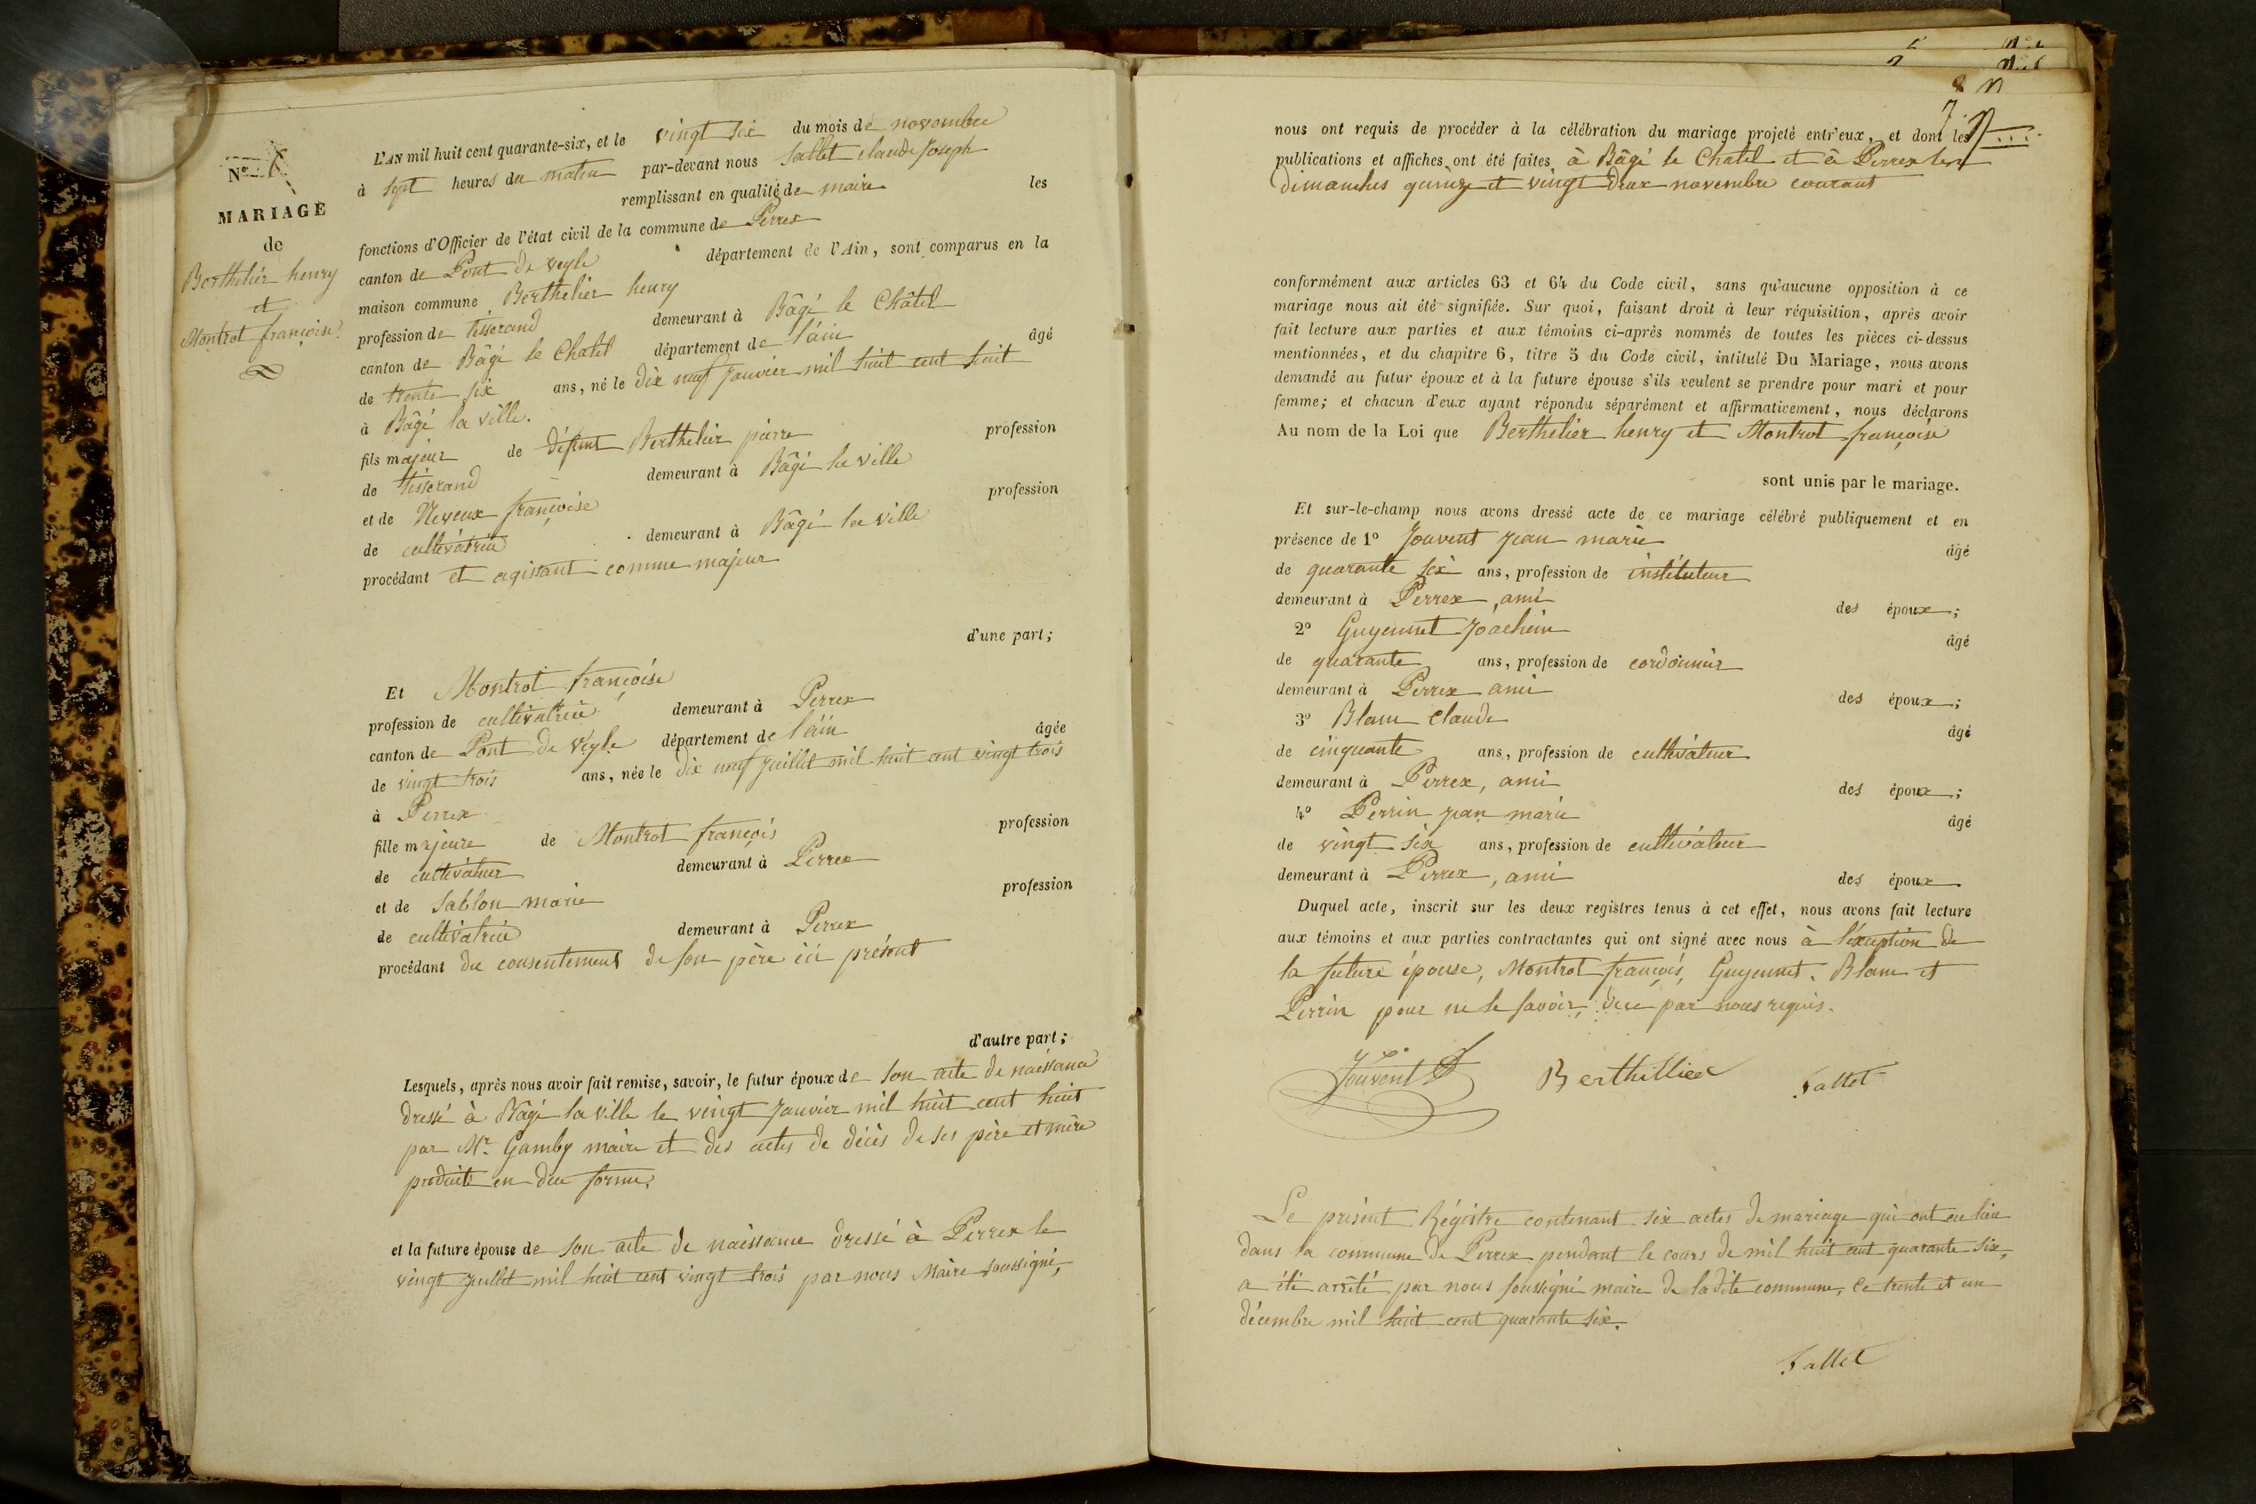 N°
MARIAGE
de
Berthelier henry
et
Montrot françoise
L'AN mil huit cent quarante-six, et le vingt six du mois de novembre
à sept heures du matin par-devant nous Sallet claude Joseph
remplissant en qualité de maire les
fonctions d'Officier de l'état civil de la commune de Perrex
canton de Pont de veyle département de l'Ain, sont comparus en la
maison commune Berthelier henry
profession de tisserand demeurant à Bâgé le Châtel
canton de Bâgé le Chatel département de l'ain âgé
de trente six ans, né le dix neuf Janvier mil huit cent huit
à Bâgé la ville.
fils majeur de défunt Berthelier pierre profession
de tisserand demeurant à Bâgé la ville
et de Neveux françoise profession
de cultivatrice demeurant à Bâgé la ville
procédant et agissant comme majeur
d'une part;
Et Montrot françoise
profession de cultivatrice demeurant à Perrex
canton de Pont de Veyle département de l'ain âgée
de vingt trois ans, née le dix neuf Juillet mil huit cent vingt trois
à Perrex
fille majeure de Montrot françois profession
de cultivateur demeurant à Perrex
et de Sablon marie profession
de cultivatrice demeurant à Perrex
procédant du consentement de son père ici présent
d'autre part;
Lesquels, après nous avoir fait remise, savoir, le futur époux de son acte de naissance
dressé à Bâgé la ville le vingt Janvier mil huit cent huit
par Mr. Gamby maire et des actes de décès de ses père et mère
produits en due forme.
et la future épouse de son acte de naissance dressé à Perrex le
vingt Juillet mil huit cent vingt trois par nous Maire soussigné,
nous ont requis de procéder à la célébration du mariage projeté entr'eux, et dont les
publications et affiches ont été faites à Bâgé le Chatel et à Perrex les
dimanches quinze et vingt deux novembre courant
conformément aux articles 63 et 64 du Code civil, sans qu'aucune opposition à ce
mariage nous ait été signifiée. Sur quoi, faisant droit à leur réquisition, après avoir
fait lecture aux parties et aux témoins ci-après nommés de toutes les pièces ci-dessus
mentionnées, et du chapitre 6, titre 5 du Code civil, intitulé Du Mariage, nous avons
demandé au futur époux et à la future épouse s'ils veulent se prendre pour mari et pour
femme; et chacun d'eux ayant répondu séparément et affirmativement, nous déclarons
Au nom de la Loi que Berthelier henry et Montrot françoise
sont unis par le mariage.
Et sur-le-champ nous avons dressé acte de ce mariage célébré publiquement et en
présence de 1° Jouvent Jean marie âgé
de quarante six ans, profession de instituteur
demeurant à Perrex, ami des époux;
2° Guyennet Joachim âgé
de quarante ans, profession de cordonnier
demeurant à Perrex ami des époux;
3° Blanc Claude âgé
de cinquante ans, profession de cultivateur
demeurant à Perrex, ami des époux;
4° Perrin Jean marie âgé
de vingt six ans, profession de cultivateur
demeurant à Perrex, ami des époux
Duquel acte, inscrit sur les deux registres tenus à cet effet, nous avons fait lecture
aux témoins et aux parties contractantes qui ont signé avec nous à l'exception de
la future épouse, Montrot françois, Guyennet, Blanc et
Perrin pour ne le savoir, de ce par nous requis.
Jouvent Berthillier Sallet
Le présent Régistre contenant six actes de mariage qui ont eu lieu
dans la commune de Perrex pendant le cours de mil huit cent quarante six,
a été arrêté par nous soussigné maire de ladite commune, ce trente et un
décembre mil huit cent quarante six.
Sallet